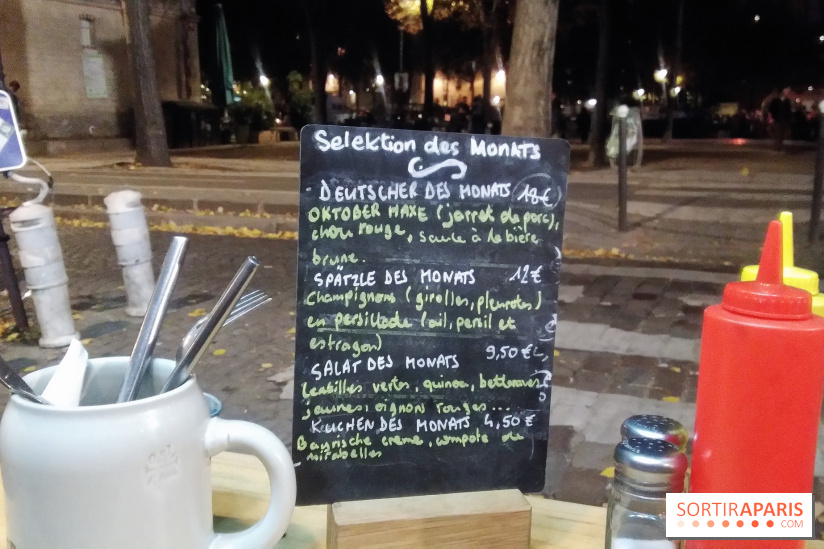 Selektion des MONATS
DEUTSCHER DES MONATS 18€
OKTOBER HAXE (jarret de porc),
chou rouge, sauce à la bière
brune.
SPÄTZLE DES MONATS 12€
Champignons (girolles, pleurotes)
en persillade (ail, persil et
estragon)
SALAT DES MONATS 9,50€
Lentilles vertes, quinoa, betteraves
jaunes, oignons rouges...
KUCHEN DES MONATS 4,50€
Bayrische creme, compote de
mirabelles
SORTIRAPARIS
.COM